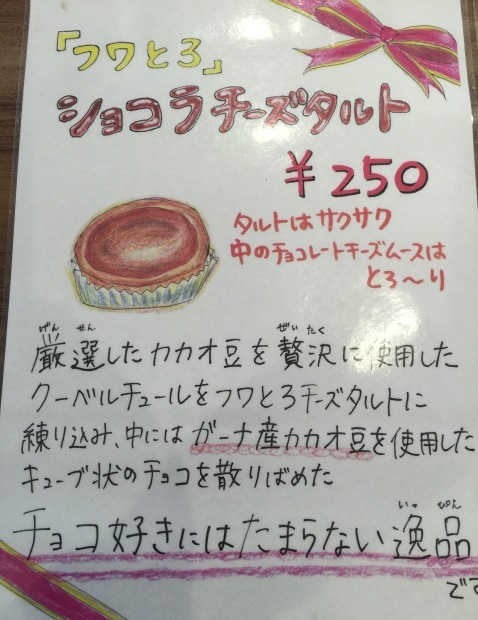 「フワとろ」
ショコラチーズタルト
¥250
タルトはサクサク
中のチョコレートチーズムースは
とろ〜り
げん せん ぜい たく
厳選したカカオ豆を贅沢に使用した
クーベルチュールをフワとろチーズタルトに
練り込み、中にはガーナ産カカオ豆を使用した
キューブ状のチョコを散りばめた
いっ ぴん
チョコ好きにはたまらない逸品
です